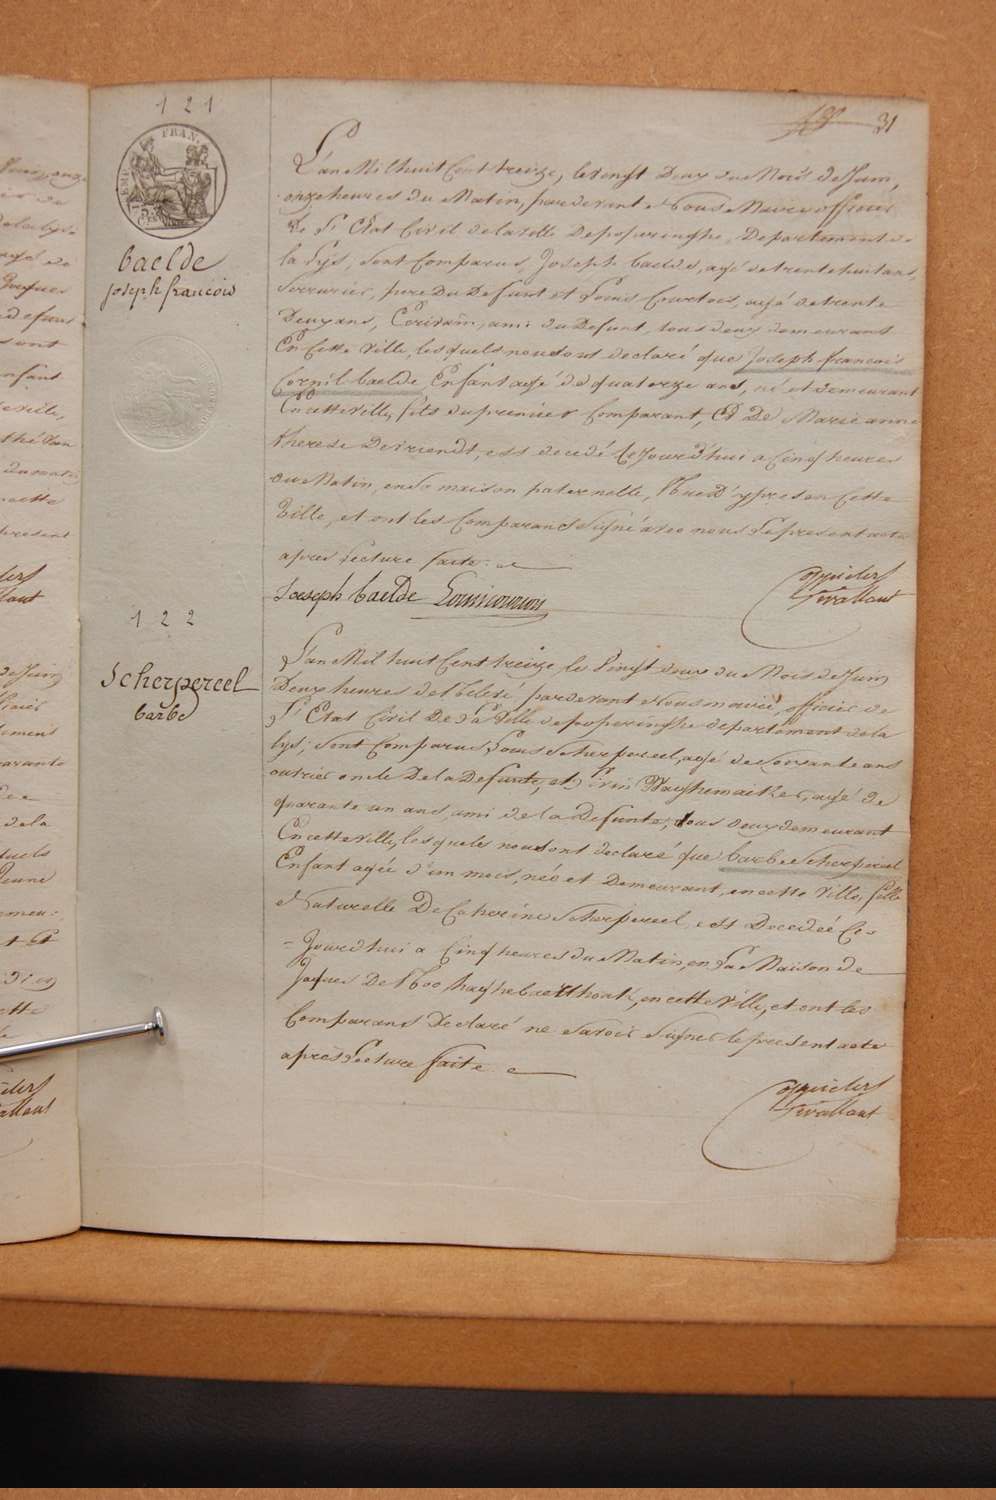 31
121
FRAN.
baelde
joseph francois
L'an Mil huit Cent treize, le vingt Deux du Mois de Juin,
onze heures du Matin, pardevant Nous Maire officier
De l'Etat Civil de la ville de poperinghe, Departement de
la lys, sont Comparus, Joseph baelde, agé de trente huit ans,
Serrurier, pere Du Defunt et Louis Courtois, agé de trente
Deux ans, Ecrivain, ami du Defunt, tous deux demeurant
En Cette Ville, lesquels nous ont declaré que Joseph francois
Cornil baelde Enfant agé de quatorze ans, né et demeurant
En cette ville, fils du premier Comparant, Et De Marie anne
therese Devriendt, est decedé Ce Jourd'hui a Cinq heures
du Matin, en sa maison paternelle, Rue D'ypres en Cette
Ville, et ont les Comparans signé avec nous le present acte
apres lecture faite.
Joseph baelde Louis Courtois
122
Scherpereel
barbe
L'an Mil huit Cent treize, le Vingt deux du Mois de Juin
Deux heures de Relevé, pardevant Nous maire, officier de
l'Etat Civil De La Ville de poperinghe departement de la
lys; sont Comparus Louis Scherpereel, agé de Soixante ans
outrier oncle De la Defunte, et Pirin Wayhemaeker, agé de
quarante un ans, ami de la Defunte, tous deux demeurant
En cette ville, lesquels nous ont declaré que barbe Scherpereel
Enfant agée d'un mois, née et Demeurant, en cette Ville, fille
Naturelle De Catherine Scherpereel, est Decedée Ce=
=Jourd'hui a Cinq heures Du Matin, en La Maison de
Jaques De Roo, haghebaerthoek, en cette ville, et ont les
Comparans Declaré ne savoir Signer le present acte
après Lecture faite.